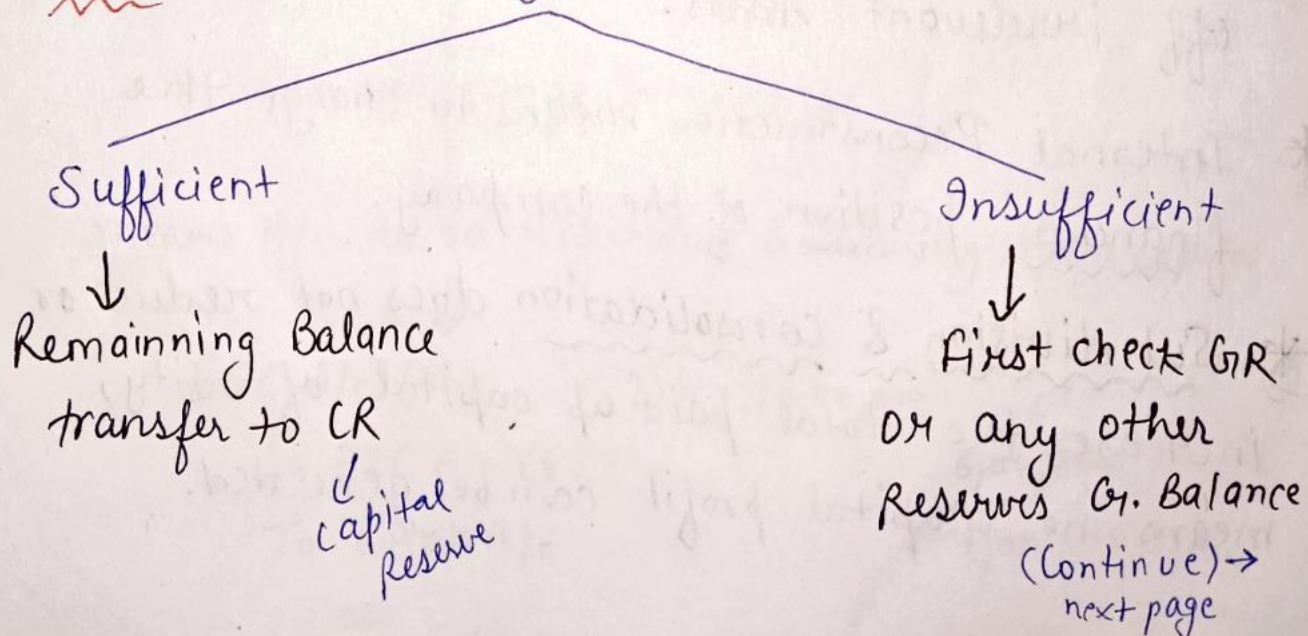 Sufficient
Insufficient
↓
↓
Remainning Balance
transfer to CR
↓
Capital
Reserve
First check GR
or any other
Reserves Cr. Balance
(Continue)→
next page